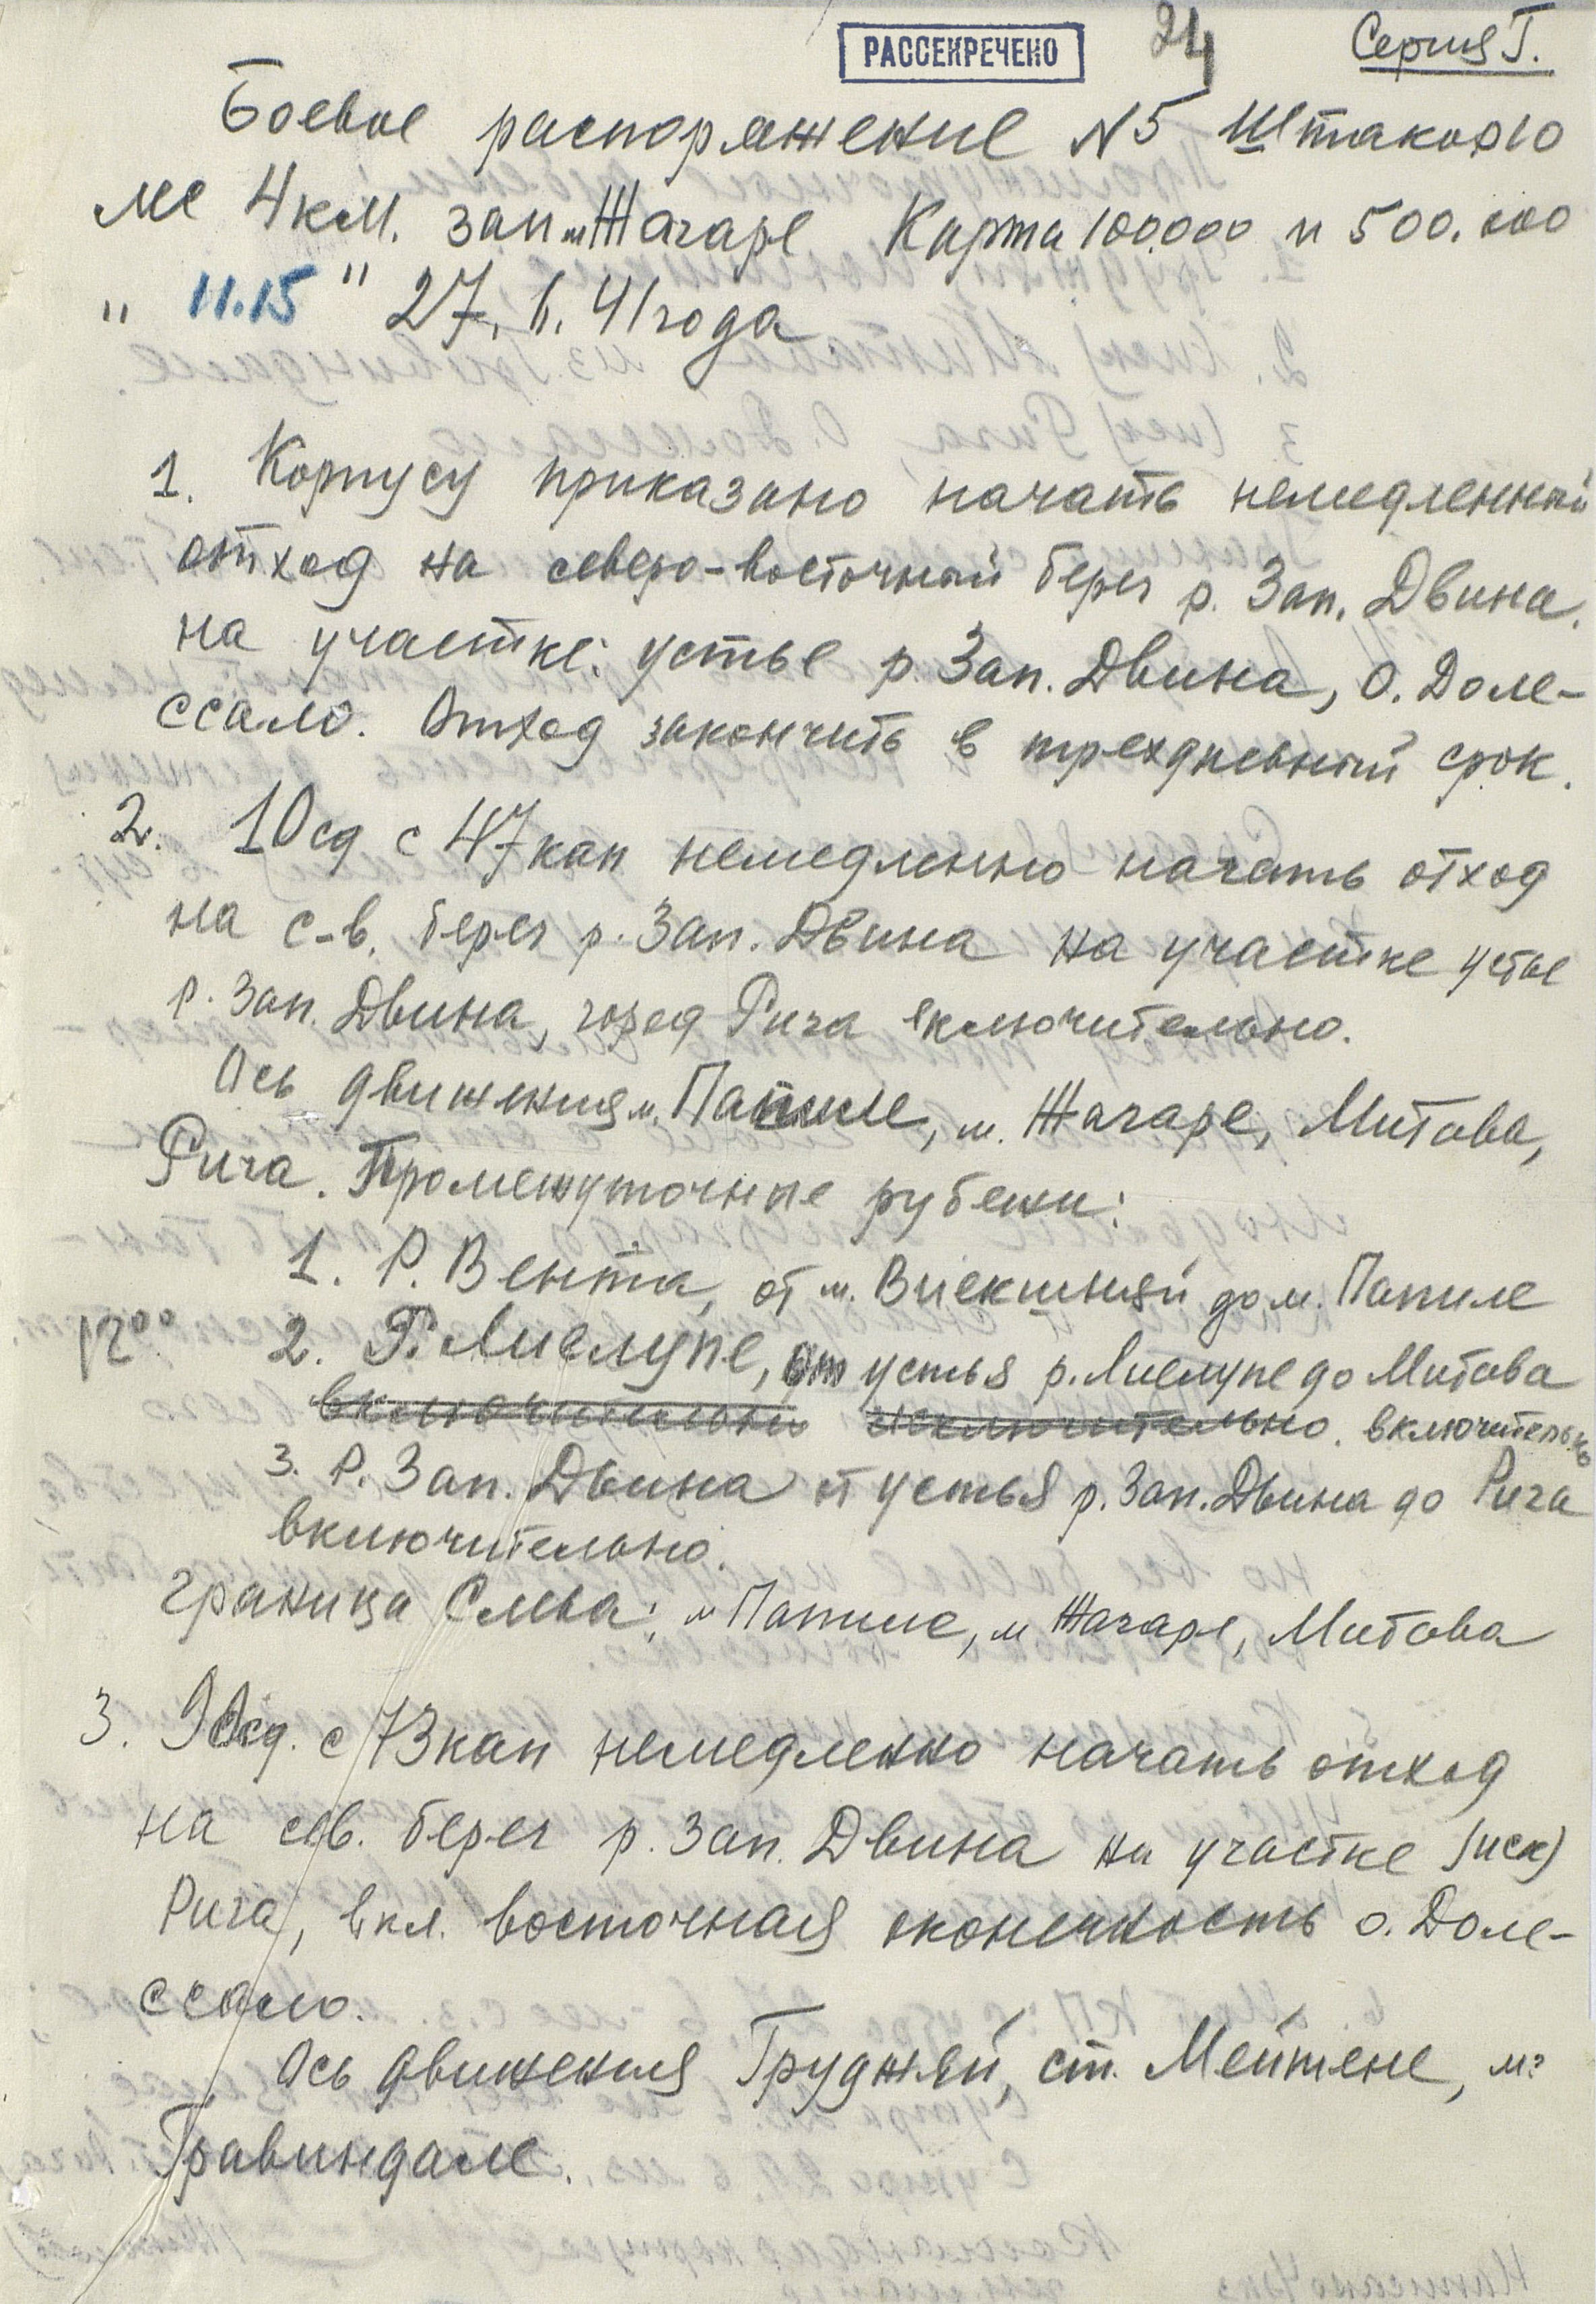 РАССЕКРЕЧЕНО 24 Серия Г.
Боевое распоряжение N5 Штакор 10
Лес 4 км. зап м Жагаре Карта 100.000 и 500.000
" 11.15 " 27. 6. 41 года
1. Корпусу приказано начать немедленный
отход на северо-восточный берег р. Зап. Двина.
на участке: устье р. Зап. Двина, о. Доле-
ссало. Отход закончить в трехдневный срок.
2. 10 сд с 47 кап немедленно начать отход
на с-в. берег р. Зап. Двина на участке устье
р. Зап. Двина, город Рига включительно.
Ось движения м. Папиле, м. Жагаре, Митава,
Рига. Промежуточные рубежи:
1. Р. Вента, от м. Виекшняй до м. Папиле
12⁰⁰ 2. Р. Лиелупе, от устья р. Лиелупе до Митава
включительно исключительно. включительно
3. Р. Зап. Двина от устья р. Зап. Двина до Рига
включительно.
граница слева: м Папиле, м Жагаре, Митава
3. 90 сд. с 73 кап немедленно начать отход
на св. берег р. Зап. Двина на участке (иск)
Рига, вкл. восточная оконечность о. Доле-
ссало.
Ось движения Груджяй, ст. Мейтене, мз
Гравиндале.